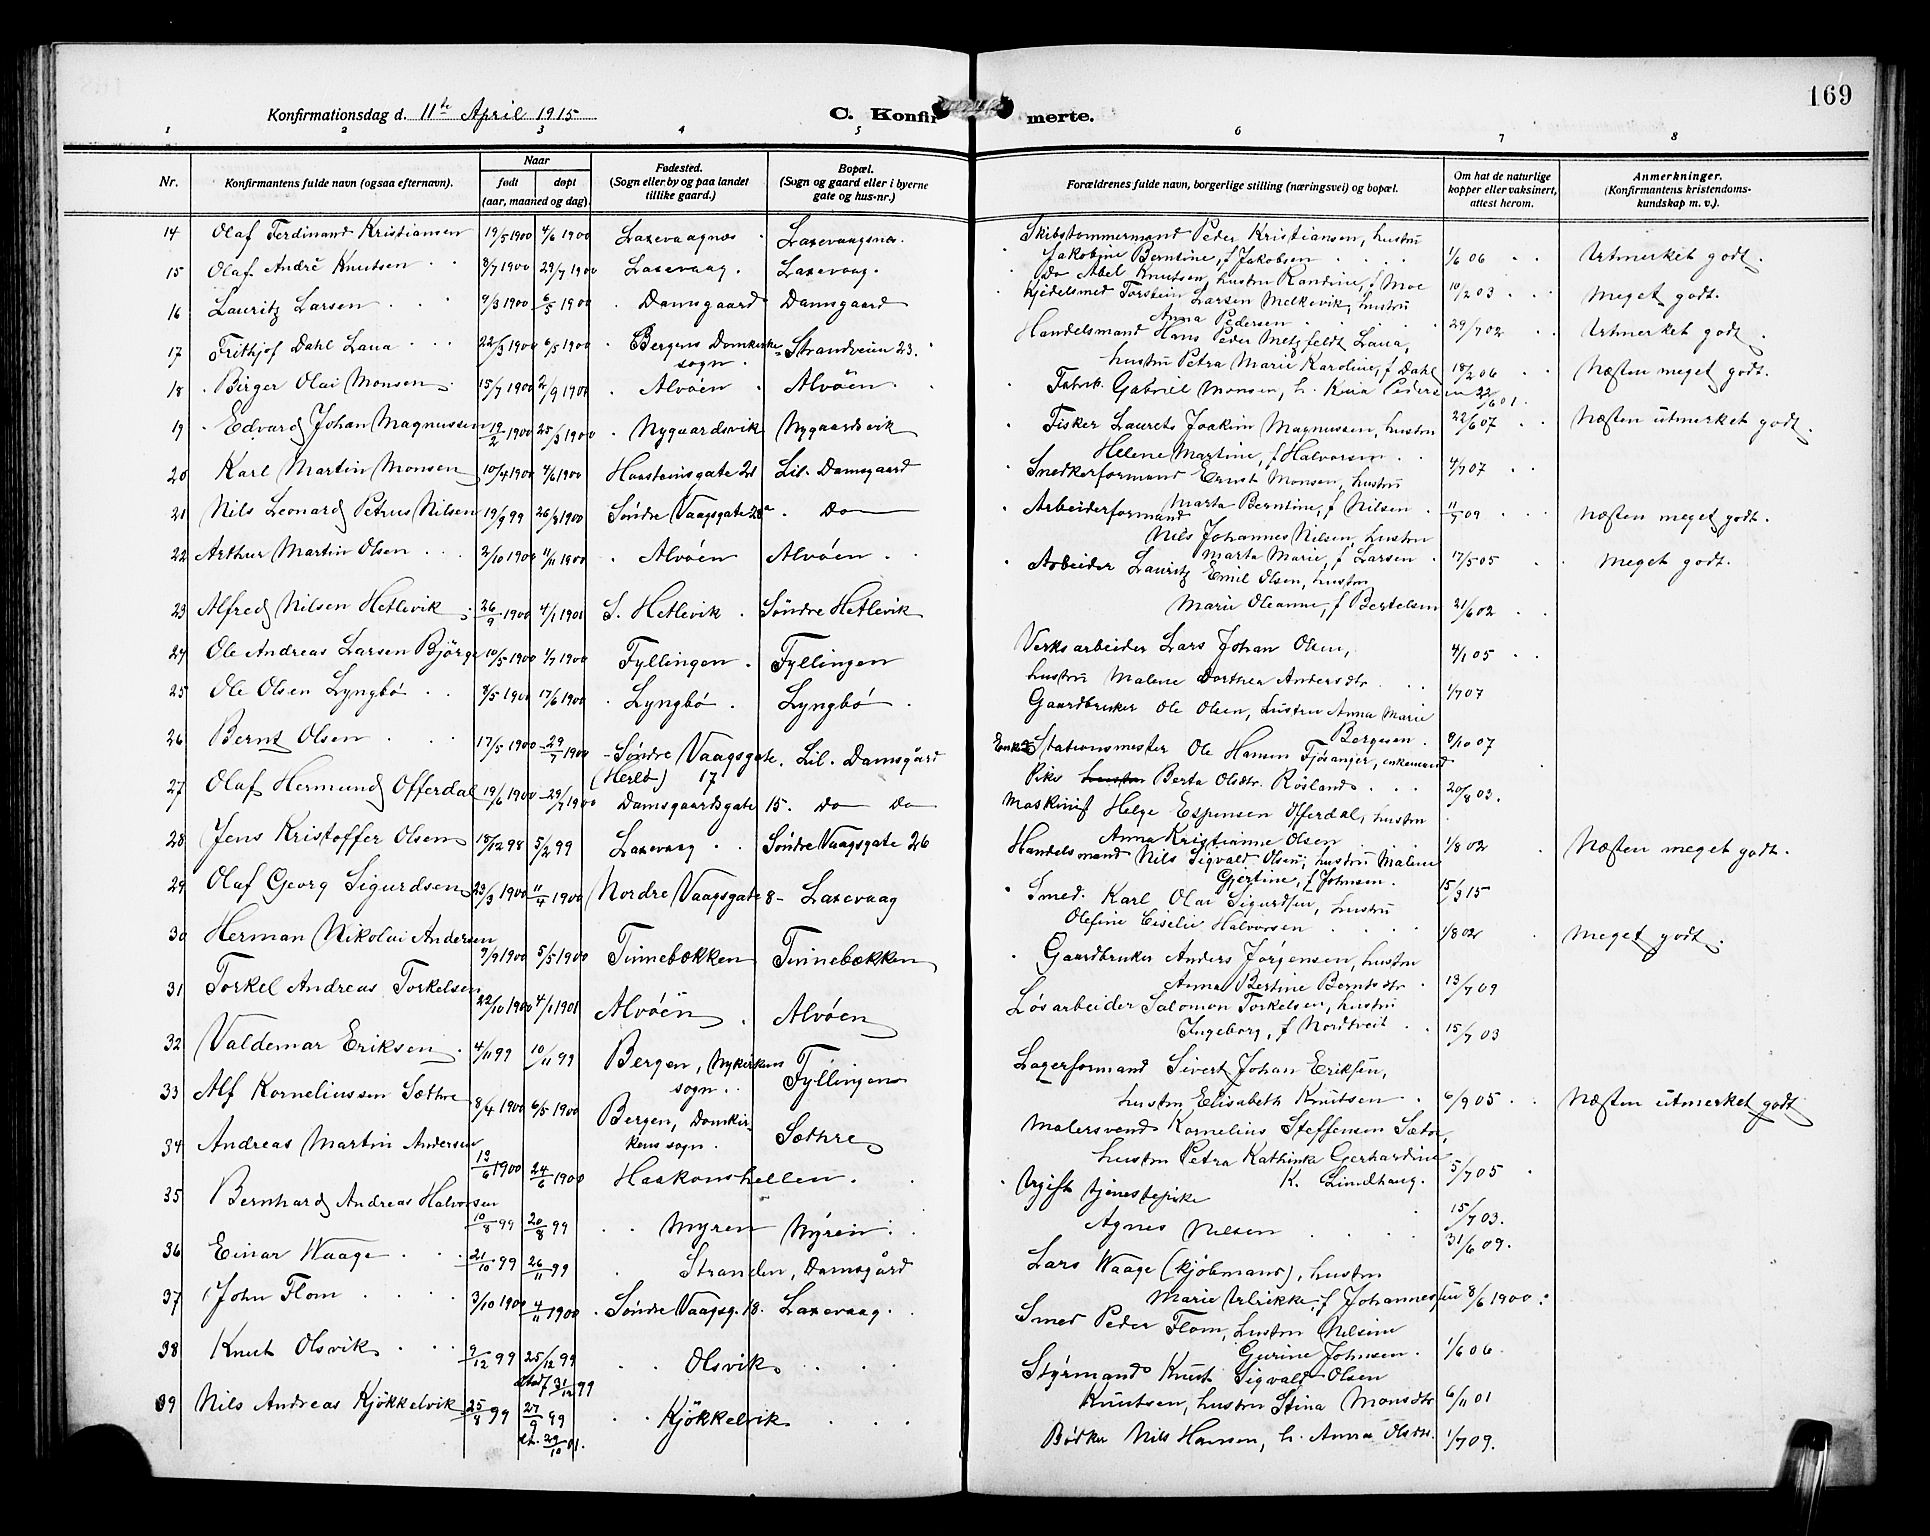 169
Konfirmationsdag d. 11te April 1915
C. Konfirmerte.
1 2 3 4 5 6 7 8
Nr.
Konfirmantens fulde navn (ogsaa efternavn).
Naar
født døpt
(aar, maaned og dag).
Fødested.
(Sogn eller by og paa landet
tillike gaard.)
Bopæl.
(Sogn og gaard eller i byerne
gate og hus-nr.)
Forældrenes fulde navn, borgerlige stilling (næringsvei) og bopæl.
Om hat de naturlige
kopper eller vaksinert,
attest herom.
Anmerkninger.
(Konfirmantens kristendoms-
kundskap m. v.).
14 Olaf Ferdinand Kristiansen 19/5 1900 4/6 1900 Laxevaagnes Laxevaagsnes. Skibstømmermand Peder Kristiansen, hustru
Jakobine Berntine, f Jakobsen 1/6 06 Utmerket godt.
15 Olaf André Knutsen 3/7 1900 29/7 1900 Laxevaag. Laxevaag. Do Abel Knutsen, hustru Randine, f Moe 10/2 03 Meget godt.
16 Lauritz Larsen 9/3 1900 6/5 1900 Damsgaard Damsgaard Kjedelsmed Torstein Larsen Melkevik, hustru
Anna Pedersen 29/7 02 Utmerket godt.
17 Frithjof Dahl Laua 22/3 1900 6/5 1900 Bergens Domkirke- Strandveien 23. Handelsmand Hans Peder Metzfeldt Laua,
sogn. hustru Petra Marie Karoline, f Dahl 18/2 06 Næsten meget godt.
18 Birger Olai Monsen 15/7 1900 2/9 1900 Alvøen Alvøen. Fabrik. Gabriel Monsen, h. Kaia Pedersen 22/6 01.
19 Edvard Johan Magnussen 19/2 1900 25/3 1900 Nygaardsvik Nygaardsvik Fisker Laurets Joakim Magnussen, hustru 22/6 07 Næsten utmerket godt.
Helene Martine, f Halvorsen
20 Karl Martin Monsen 10/4 1900 4/6 1900 Haasteinsgate 21 Lil. Damsgaard Snedkerformand Ernst Monsen, hustru 4/7 07
Marta Berntine, f Nilsen
21 Nils Leonard Petrus Nilsen 19/9 99 26/8 1900 Søndre Vaagsgate 28a Do Arbeiderformand 11/9 09 Næsten meget godt.
Nils Johannes Nilsen, hustru
Marta Marie, f Larsen
22 Arthur Martin Olsen 2/10 1900 11/11 1900 Alvøen Alvøen. Arbeider Lauritz Emil Olsen, hustru 17/5 05 Meget godt.
Marie Oleanne, f Bertelsen 21/6 02
23 Alfred Nilsen Hetlevik 26/9 1900 4/1 1901 S. Hetlevik Søndre Hetlevik
24 Ole Andreas Larsen Bjørge 10/5 1900 1/7 1900 Fyllingen. Fyllingen Verksarbeider Lars Johan Olsen, 4/1 05
hustru Malene Dorthea Andersdtr
25 Ole Olsen Lyngbø 8/5 1900 17/6 1900 Lyngbø. Lyngbø Gaardbruker Ole Olsen, hustru Anna Marie 1/7 07
Bergesen.
26 Bernt Olsen 17/5 1900 29/7 1900 Søndre Vaagsgate. Lil. Damsgård Enkem. Stationsmester Ole Hansen Fjøsanger, enkemand 9/10 07
(Herlø) 17 Pike hustru Berta Olsdtr. Røsland
27 Olaf Hermund Offerdal 19/6 1900 29/7 1900 Damsgaardsgate 15. Do Do Maskinist Helge Espensen Offerdal, hustru 20/8 03.
Anna Kristianne Olsen
28 Jens Kristoffer Olsen 18/12 98 5/2 99 Laxevaag Søndre Vaagsgate 26 Handelsmand Nils Sigvald Olsen, hustru Malene 1/8 02 Næsten meget godt.
Gjertine, f Johnsen.
29 Olaf Georg Sigurdsen 23/3 1900 11/4 1900 Nordre Vaagsgate 8- Laxevaag Smed. Karl Olai Sigurdsen, hustru 15/3 15
Olefine Eiselie Halvorsen
30 Herman Nikolai Andersen 9/9 1900 5/5 1900 Tinnebækken Tinnebækken Gaardbruker Anders Jørgensen, hustru 1/8 02 Meget godt.
Anna Bertine Berntsdtr.
31 Torkel Andreas Torkelsen 22/10 1900 4/1 1901 Alvøen. Alvøen Løsarbeider Salomon Torkelsen, hustru 13/7 09
Ingeborg, f Nordtveit 15/7 03
32 Valdemar Eriksen 4/11 99 10/11 99 Bergen, Nykirkens Fyllingen Lagerformand Sivert Johan Eriksen,
sogn. hustru Elisabeth Knutsen 6/9 05 Næsten utmerket godt
33 Alf Korneliussen Sæthre 8/4 1900 6/5 1900 Bergen, Domkir- Sæthre Malersvend Kornelius Steffensen Sætre,
kens sogn. hustru Petra Kathinka Gerhardine
K. Lindhaug. 5/7 05
34 Andreas Martin Andersen 12/6 1900 24/6 1900 Haakonshellen. Ugift tjenestepike
Agnes Nilsen 15/7 03.
35 Bernhard Andreas Halvorsen 10/8 99 20/8 99 Myren Myren 31/6 09.
36 Einar Waage 21/10 99 26/11 99 Stranden, Damsgård Lars Waage (kjøbmand), hustru
Marie Ulrikke, f Johannesen 8/6 1900
37 John Flom 3/10 1900 4/11 1900 Søndre Vaagsg. 18. Laxevaag. Smed Peder Flom, hustru Nilsine
Gurine Johnsen. 1/6 06.
38 Knut Olsvik 9/12 99 25/12 99 Olsvik Styrmand Knut Sigvald Olsen
stadf 31/12 99 Knutsen, hustru Stina Monsdtr 6/11 01
39 Nils Andreas Kjøkkelvik 25/8 99 27/9 99 Kjøkkelvik Bødker Nils Hansen, h. Anna Olsdtr. 1/7 09.
st. 29/10 01.